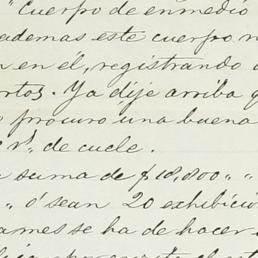 " Cuerpo de enmedio
ademas este cuerpo
en él, registrando
. Ya dije arriba
procuro una buena
de cuele.
suma de $18,800 " "
" ó sean 20 exhibicio
se ha de hacer